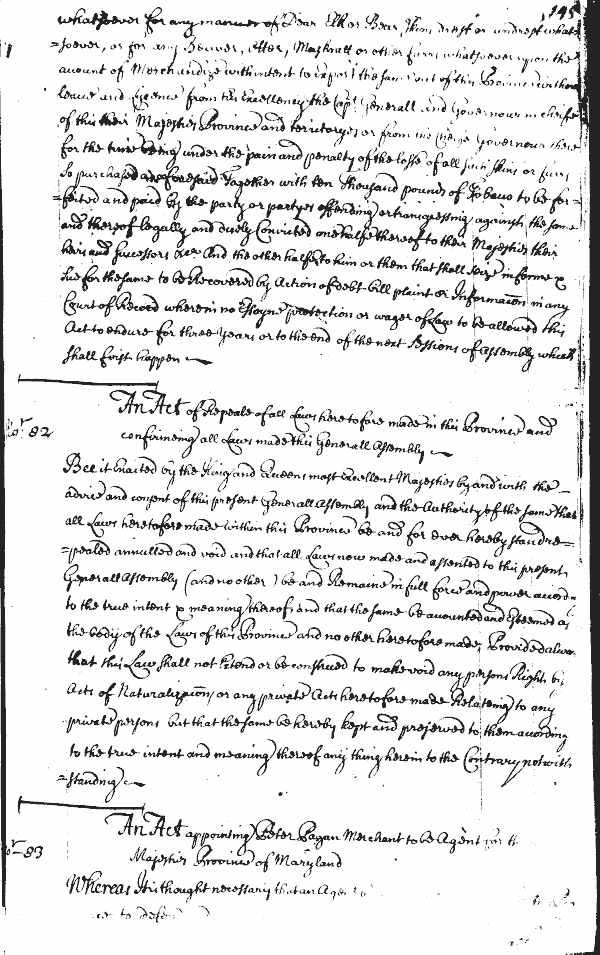 195
whatsoever for any manner of Dear Elk or Bear Skins drest or undrest what
=soever, or for any Beaver, Otter, Muskratt or other furrs whatsoever upon the
account of Merchandize with intent to Export the same out of this Province without
leave and Licence from his Excellency the Capt Generall and Governour in cheife
of this their Majesties Province and territorys or from the cheife Governour there
for the time being under the pain and penalty of the losse of all such skins or furrs
so purchased as aforesaid Together with ten thousand pounds of Tobacco to be for=
=feited and paid by the party or partys offending or transgressing against the same
and thereof legally and duely Convicted one halfe thereof to their Majesties their
heirs and successors And the other halfe to him or them that shall informe
sue for the same to be Recovered by Action of debt bill plaint or Information in any
Court of Record wherein no Essoyne protection or wager of Law to be allowed this
Act to endure for three years or to the end of the next Sessions of Assembly which
shall first happen
An Act of Repeale of all Laws heretofore made in this Province and
No. 82 confirmeing all Laws made this Generall Assembly
Bee it Enacted by the King and Queens most Excellent Majesties by and with the
advice and consent of this present Generall Assembly and the Authority of the same that
all Laws heretofore made within this Province be and for ever hereby stand re=
=pealed annulled and void and that all Laws now made and assented to this present
Generall Assembly (and no other) be and Remaine in full force and power accord
to the true intent & meaning thereof and that the same be accounted and Esteemed as
the body of the Laws of this Province and no other heretofore made, Provided alwa
that this Law shall not Extend or be construed to make void any persons Right by
Acts of Naturalizacon, or any private Acts heretofore made Relateing to any
private persons but that the same be hereby kept and preserved to them according
to the true intent and meaning thereof any thing herein to the Contrary notwith
=standing
An Act appointing Peter Pagan Merchant to be Agent for th
No. 83 Majesties Province of Maryland
Whereas It is thought necessary that an Agent
to defend